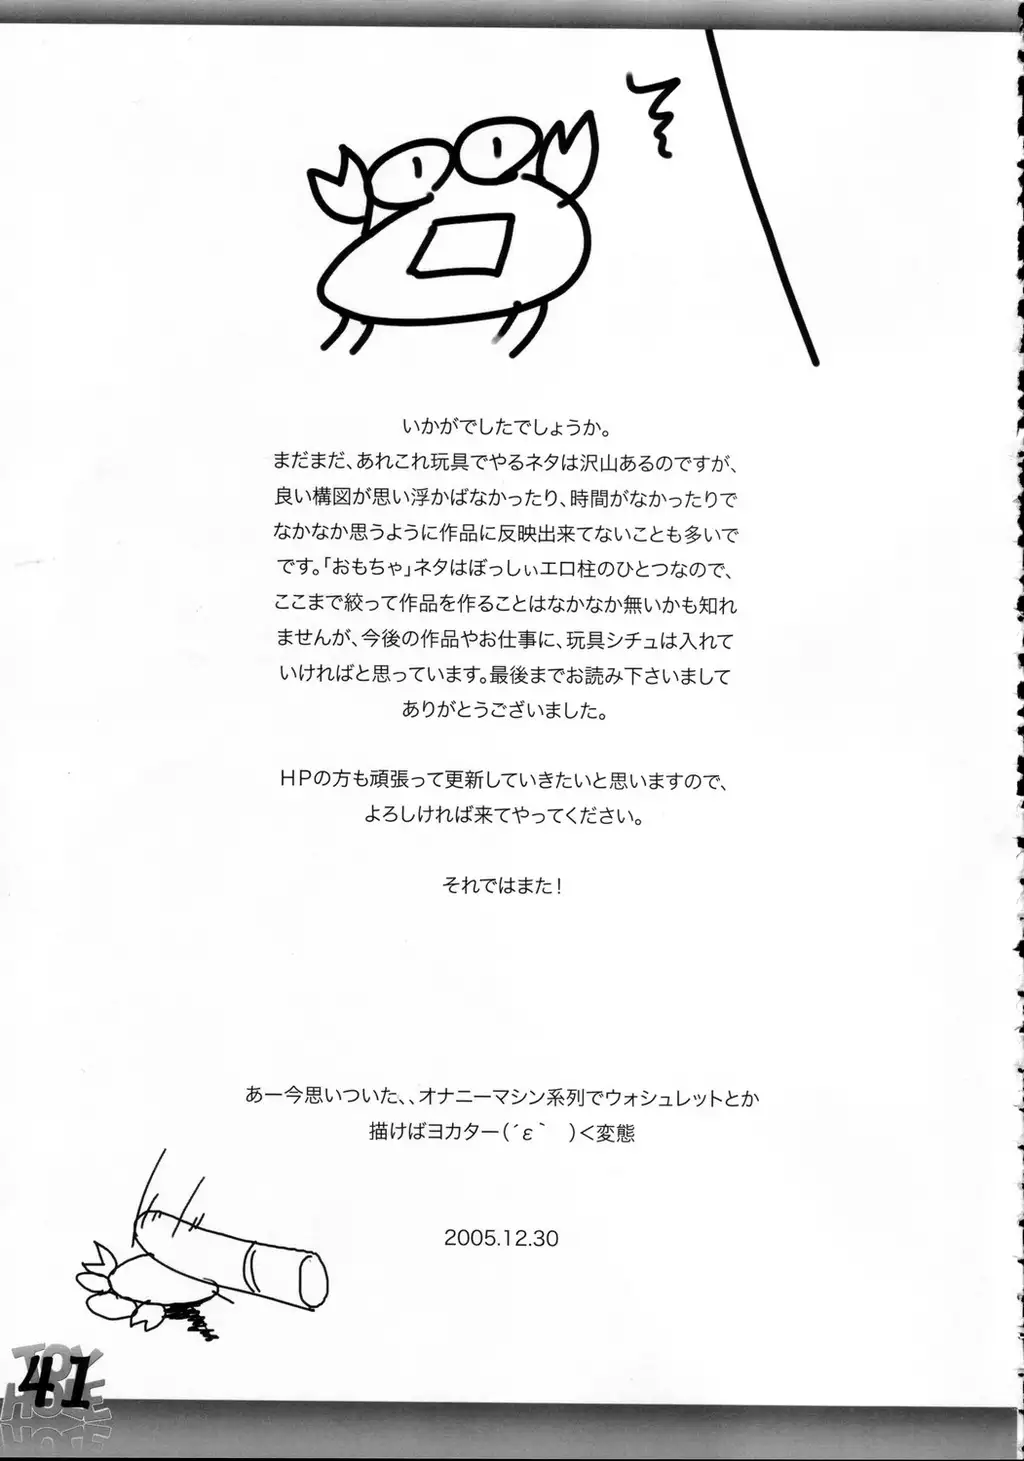 いかがでしたでしょうか。
まだまだ、あれこれ玩具でやるネタは沢山あるのですが、
良い構図が思い浮かばなかったり、時間がなかったりで
なかなか思うように作品に反映出来てないことも多いで
です。「おもちゃ」ネタはぼっしぃエロ柱のひとつなので、
ここまで絞って作品を作ることはなかなか無いかも知れ
ませんが、今後の作品やお仕事に、玩具シチュは入れて
いければと思っています。最後までお読み下さいまして
ありがとうございました。
HPの方も頑張って更新していきたいと思いますので、
よろしければ来てやってください。
それではまた!
あー今思いついた、、オナニーマシン系列でウォシュレットとか
描けばヨカター(´ε｀ )く変態
2005.12.30
TOY
HOLE
41